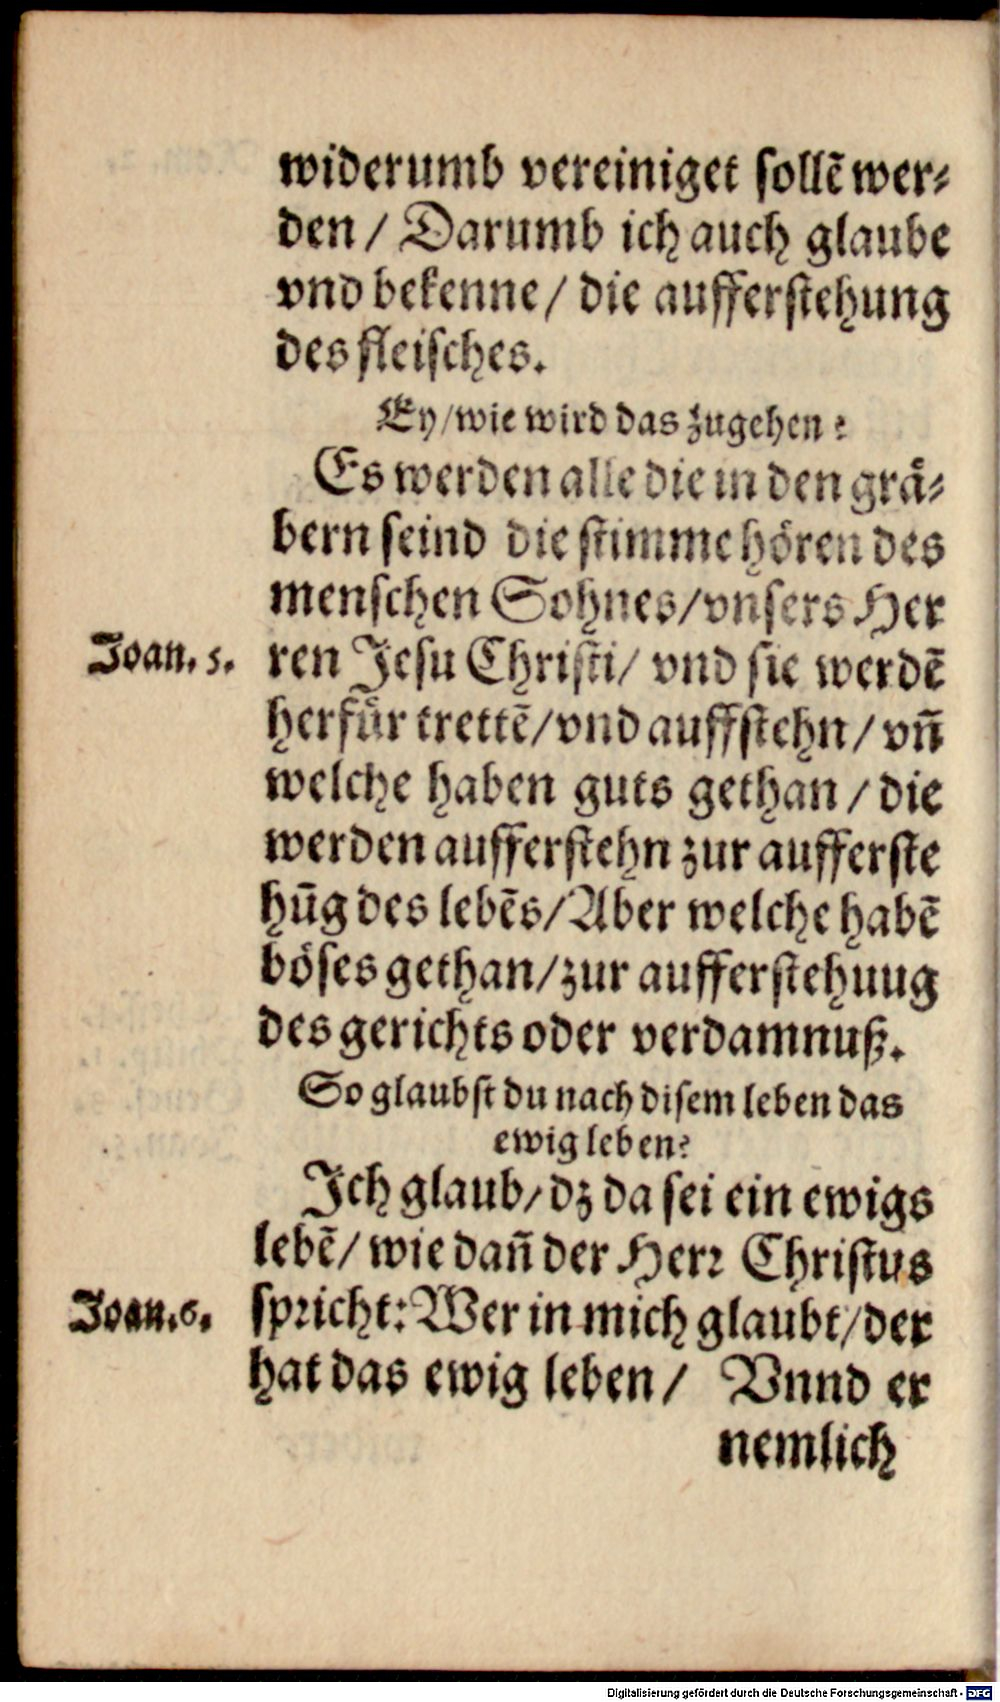 widerumb vereiniget sollẽ wer⸗
den / Darumb ich auch glaube
vnd bekenne / die aufferstehung
des fleisches.
Ey / wie wird das zugehen?
Es werden alle die in den grå⸗
bern seind die stimme hören des
menschen Sohnes / vnsers Her
Joan. 5.
ren Jesu Christi / vnd sie werdẽ
herfůr trettẽ / vnd auffstehn / vñ
welche haben guts gethan / die
werden aufferstehn zur aufferste
hũg des lebẽs / Aber welche habẽ
böses gethan / zur aufferstehuug
des gerichts oder verdamnuß.
So glaubst du nach disem leben das
ewig leben?
Ich glaub / dz da sei ein ewigs
lebẽ / wie dañ der Herr Christus
Joan. 6.
spricht: Wer in mich glaubt / der
hat das ewig leben / Vnnd er
nemlich
Digitalisierung gefördert durch die Deutsche Forschungsgemeinschaft - DFG